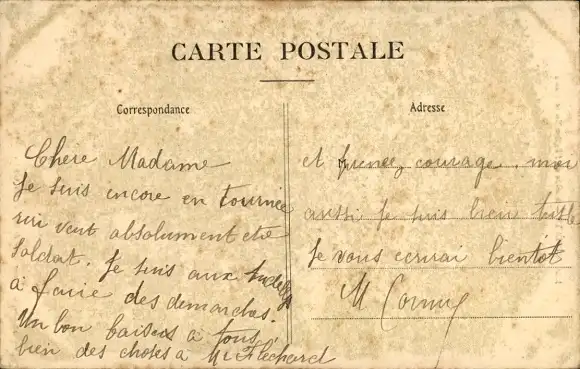 CARTE POSTALE
Correspondance
Adresse
Chere Madame
Je suis encore en tournée
veut absolument etre
Soldat. Je suis aux
à faire des demarches.
Un bon baisers a tous,
bien des choses a Mr Flechard
et prenez courage. moi
aussi je suis bien triste
Je vous ecrirai bientôt
M